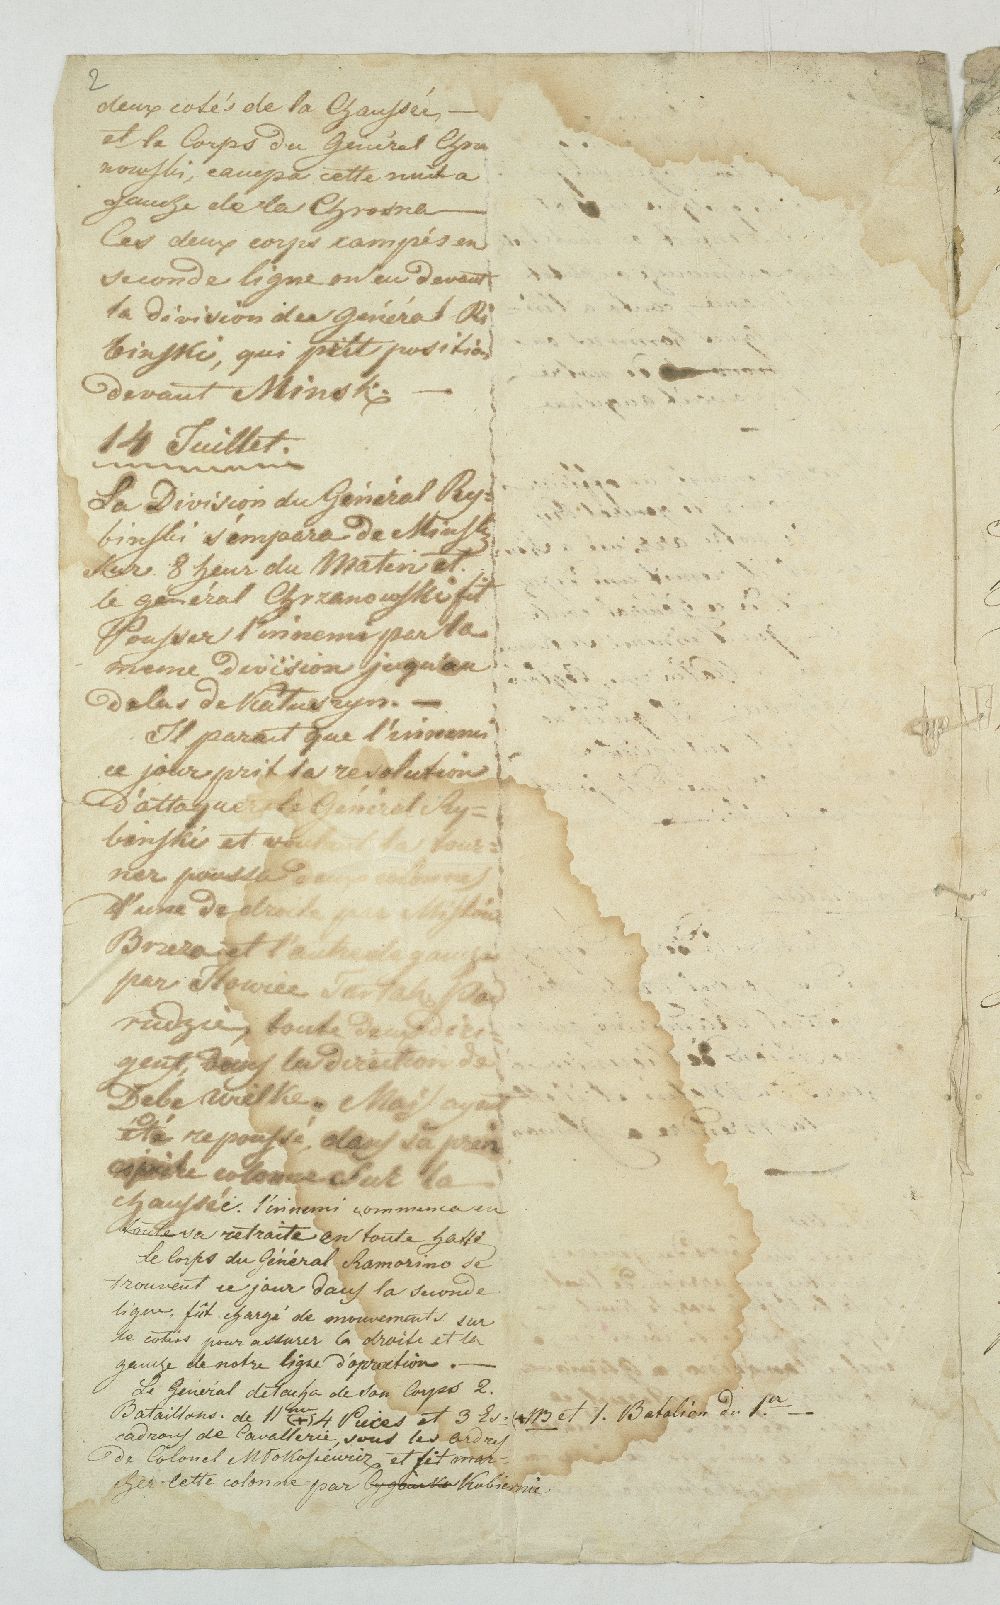 2
deux cotés de la Chaussée, —
et le Corps du Général Chrza
nowski, campa cette nuit a
gauche de la Chrosna —
Ces deux corps campés en
seconde ligne on eu devant
la division du général Ri
binski, qui prit position
devant Minsk. —
14 Juillet.
La Division du Général Ry-
binski s'émpara de Minsk
sur 8 heur du Matin et
le général Chrzanowski fit
Pousser l'innemi par la
meme division jusqu'au
dela de Katuszyn. —
Il parait que l'innemi
ce jour prit la resolution
d'attaquer le Général Ry-
binski et voulant le tour-
ner poussa deux colonnes
l'une de droite par
Brzeza et l'autre de gauche
par Tartak, Po
rudzie, toute deux diri-
gent, dans la direction de
Debe wielkie. Mais ayant
été repoussé, dans sa prin
cipale colonne sur la
chaussée. l'innemi commenca en
toute sa retraite en toute hatte
Le Corps du Général Ramorino se
trouvent ce jour dans la seconde
ligne, fût chargé de mouvements sur
le cotés pour assurer la droite et la
gauche de notre ligne d'opration. —
Le Général detacha de son Corps 2.
Bataillons. de 11me (+) 4 Pieces et 3 Es- (+ et 1. Batalion du 1.er —
cadrons de Cavallerie, sous les ordres
de Colonel Młokosiewicz et fit mar-
cher cette colonne par Kubiernie